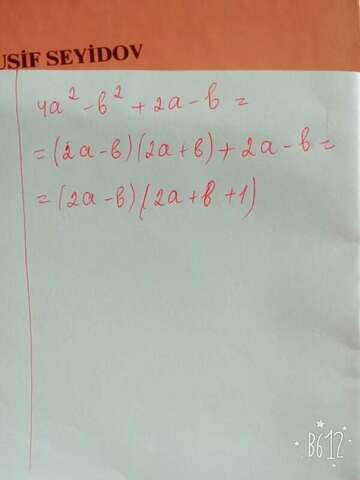 USİF SEYİDOV
4a² - b² + 2a - b =
= (2a - b)(2a + b) + 2a - b =
= (2a - b)(2a + b + 1)
B612